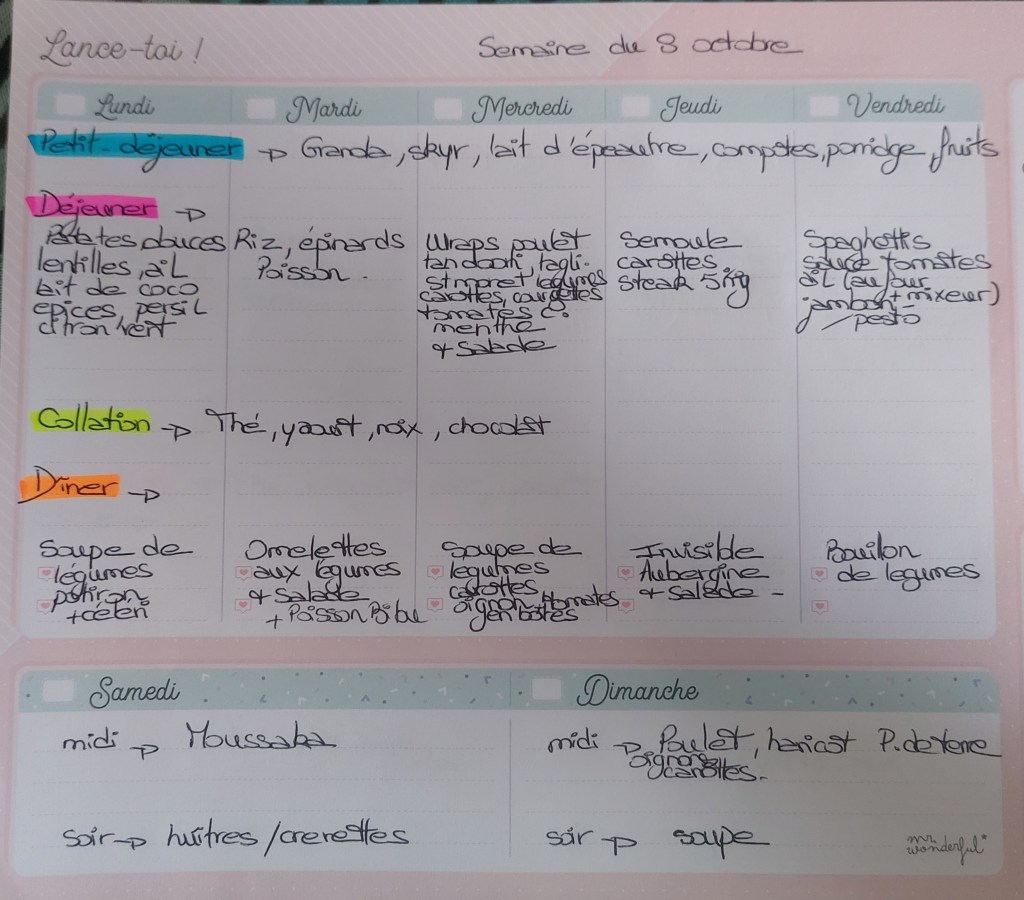 Lance-toi !
Semaine du 8 octobre
Lundi Mardi Mercredi Jeudi Vendredi
Petit-déjeuner → Granola, skyr, lait d'épeautre, compotes, porridge, fruits
Déjeuner →
Patates douces
lentilles, ail
lait de coco
epices, persil
citron vert
Riz, épinards
Poisson.
Wraps poulet
tandoori, tagli-
légumes
carottes, courgettes
tomates C.
menthe
+ Salade
Semoule
carottes
Steak 5mg
Spaghettis
sauce tomates
ail (au four
+ mixeur)
jambon
/pesto
Collation → Thé, yaourt, noix, chocolat
Dîner →
Soupe de
légumes
potiron
+céleri
Omelettes
aux légumes
+ Salade
+ Poisson
Soupe de
légumes
carottes
oignon tomates
Invisible
Aubergine
+ Salade -
Bouillon
de legumes
Samedi
midi → Moussaka
soir → huîtres / crevettes
Dimanche
midi → Poulet, haricot P. de terre
oignons
carottes.
soir → soupe
mr.
wonderful*